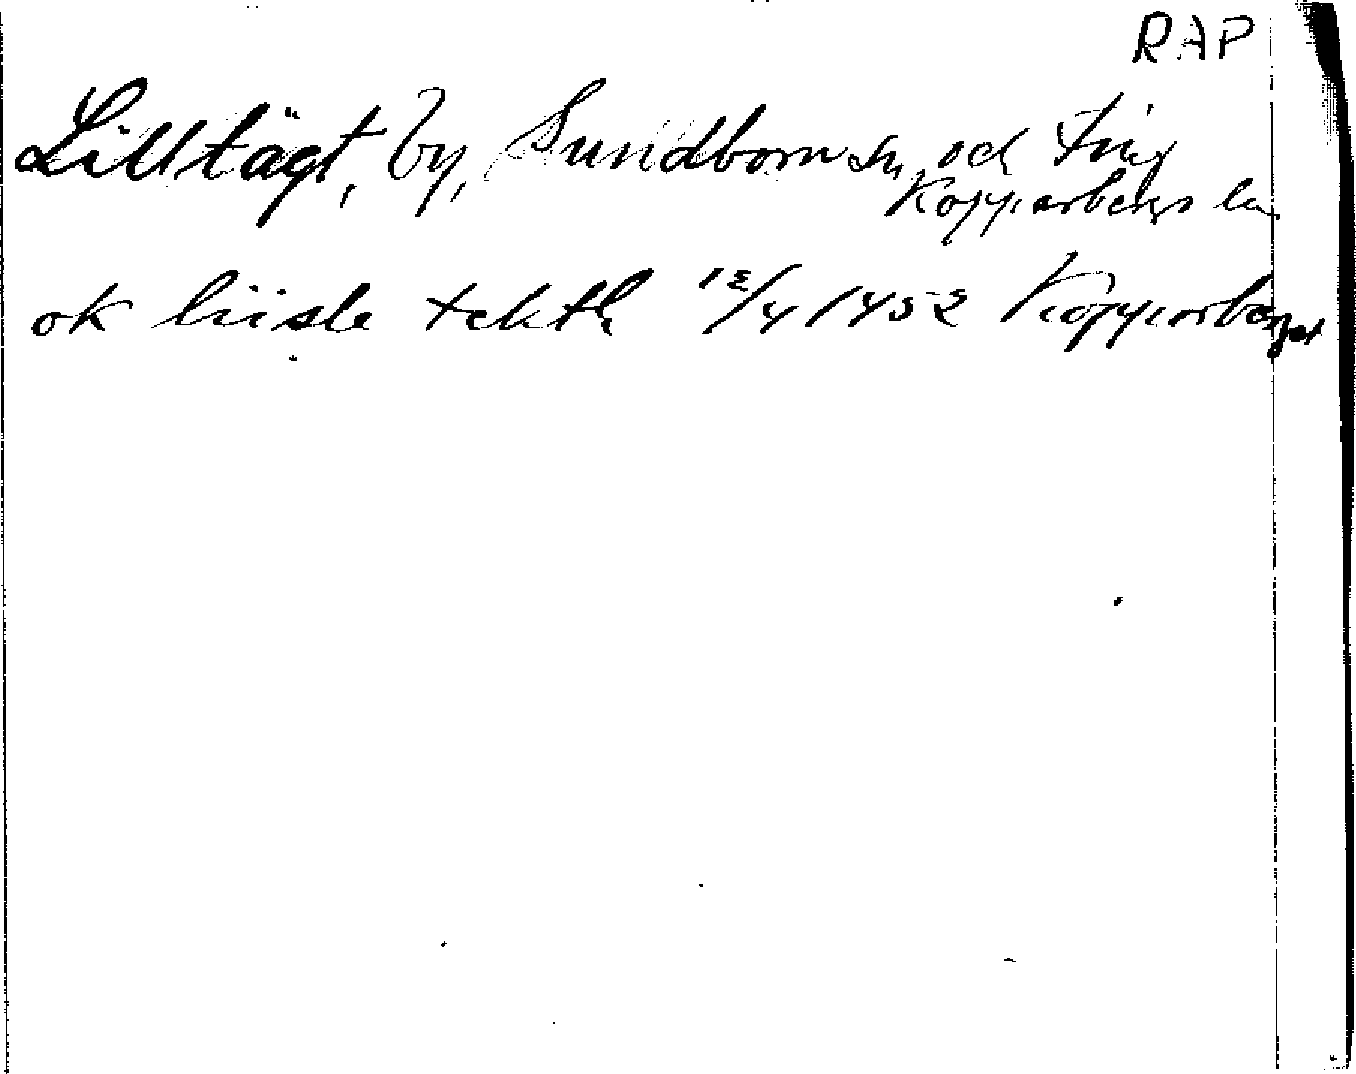 RAP
Lilltägt, by, Sundborn sn och ting
Kopparbergs län
ok liisle tekth 12/4 1452 Kopparberget